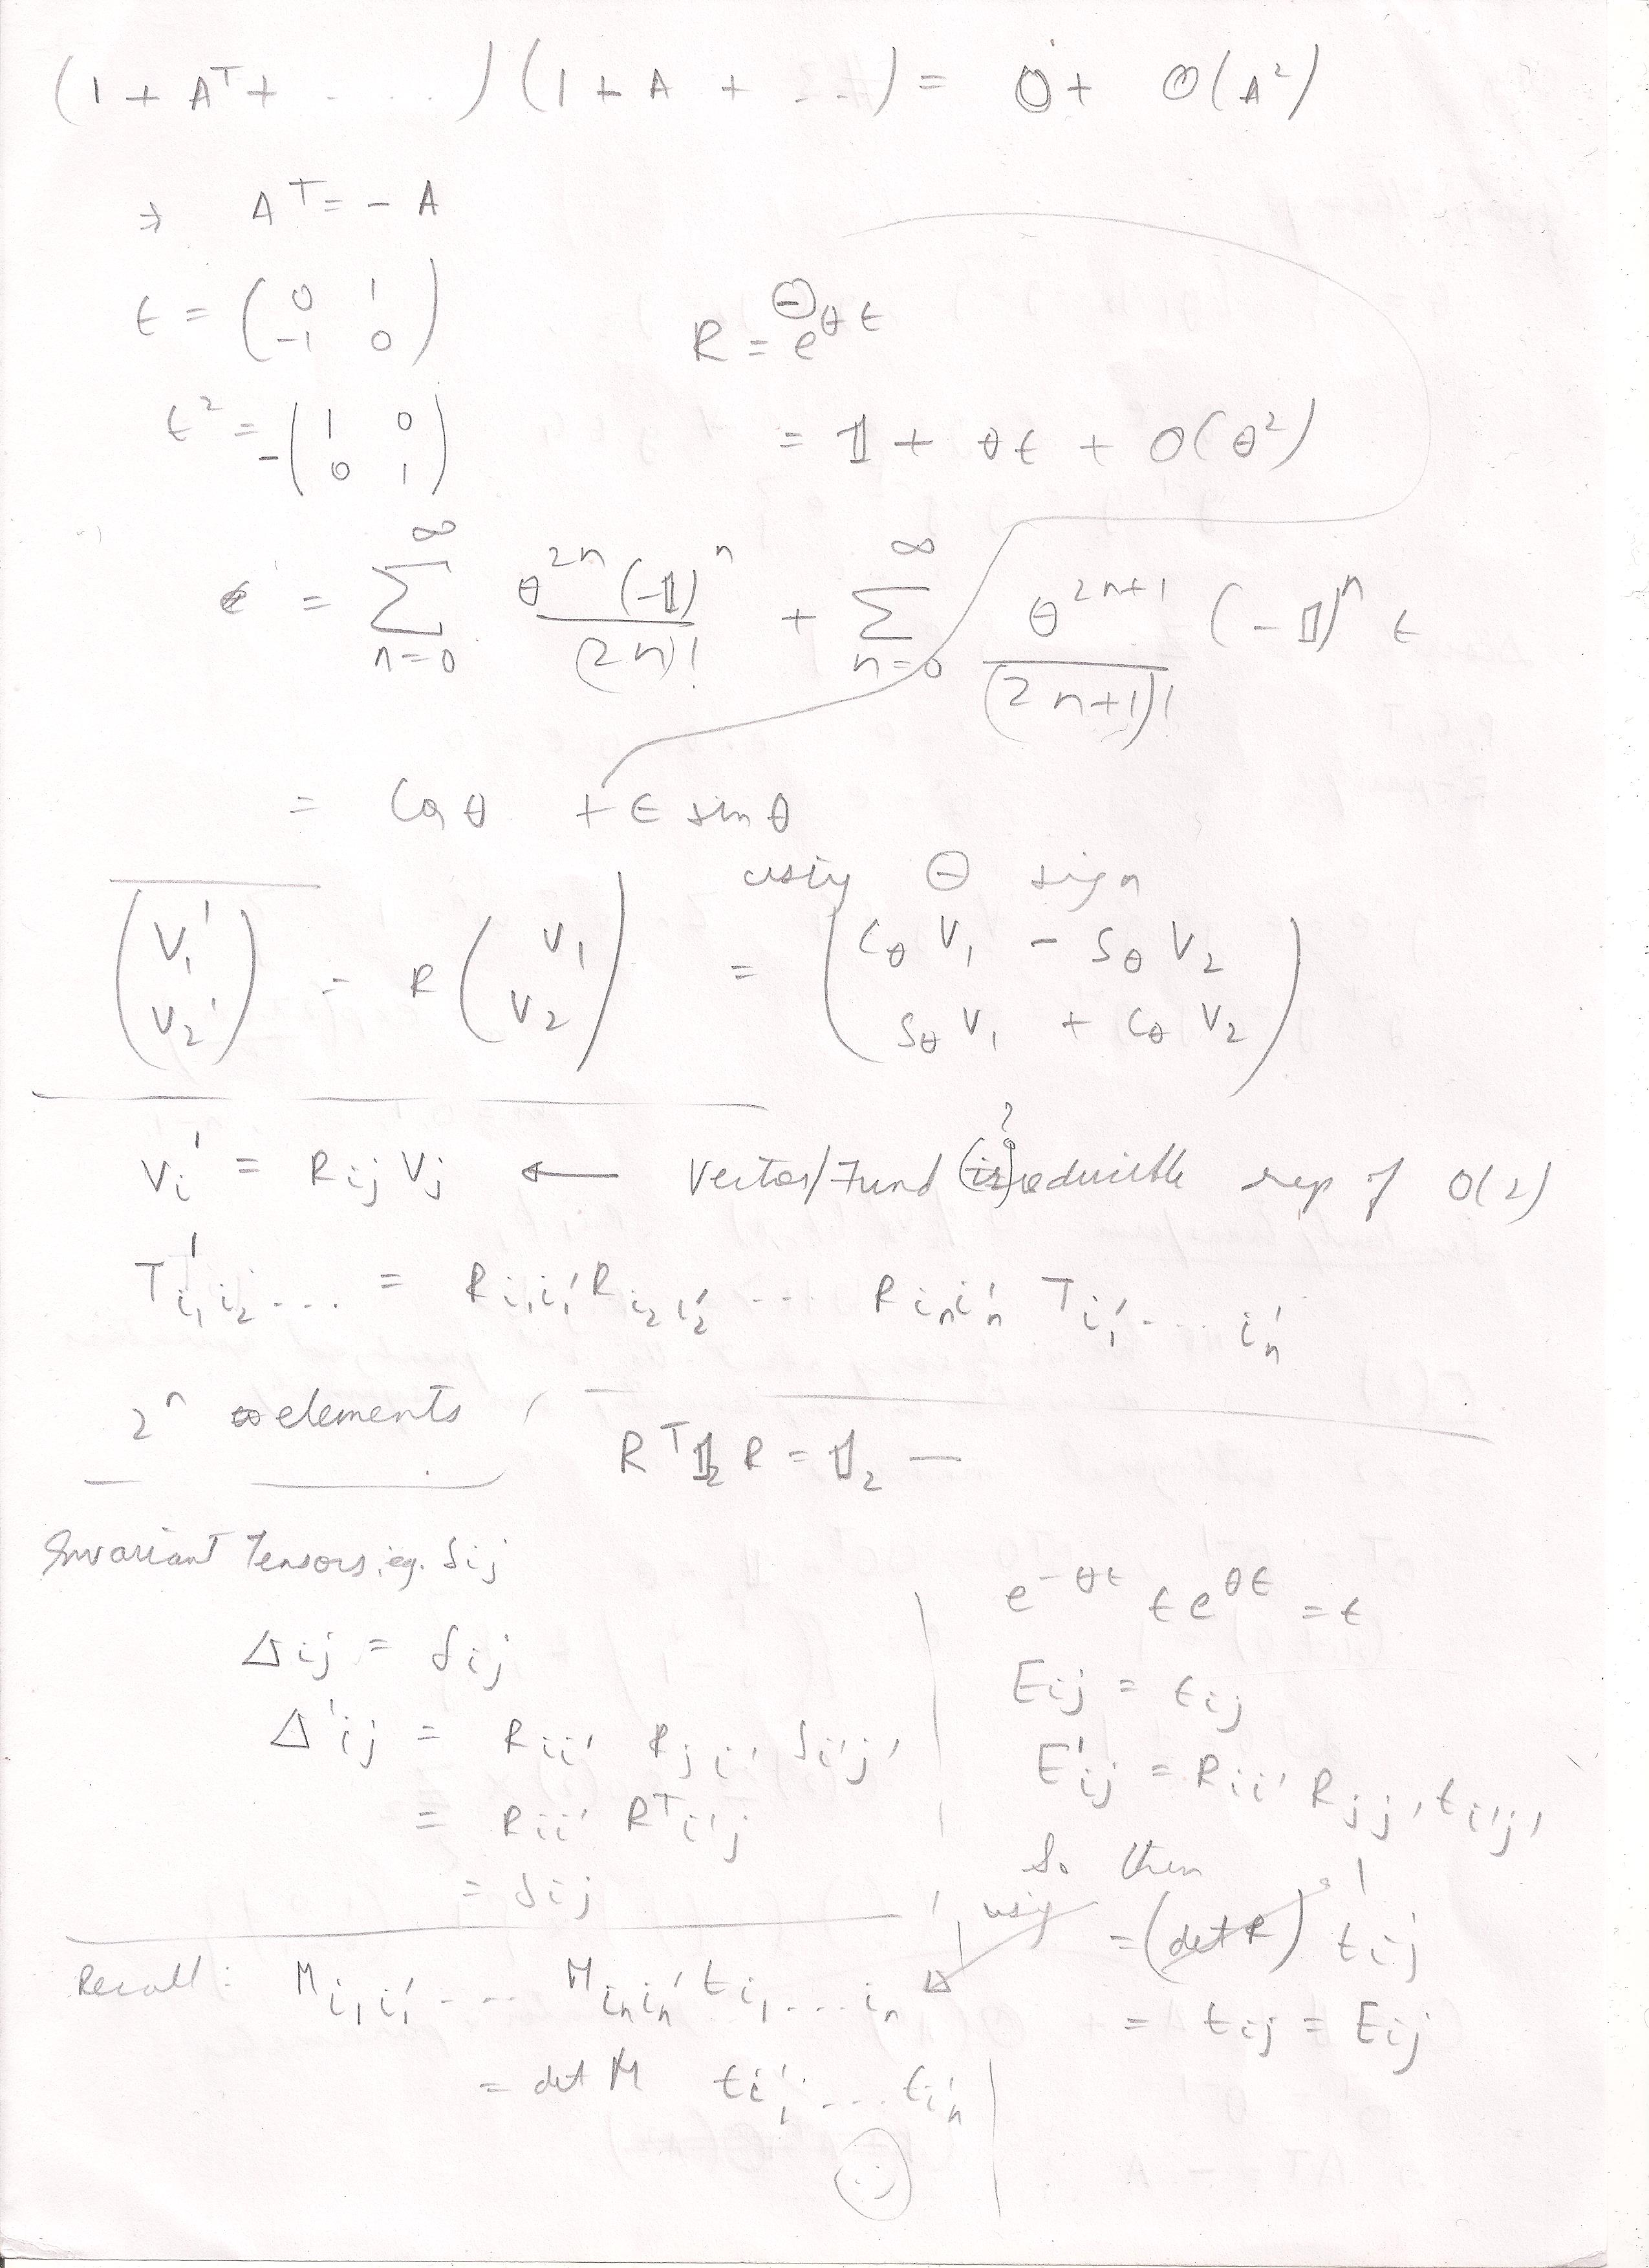 (1 + Aᵀ + . . . . )(1 + A + . . . ) = 0 + O(A²)
→ Aᵀ = − A
t = ( 0 1 ; −1 0 )
R = e^{⊖θt}
t² = −( 1 0 ; 0 1 )
= 𝟙 + θt + O(θ²)
= ∑_{n=0}^{∞} θ^{2n} (−𝟙)^n / (2n)! + ∑_{n=0}^{∞} θ^{2n+1} / (2n+1)! (−𝟙)^n t
= Cos θ + t sin θ
using ⊖ sign
( V₁' ; V₂' ) = R ( V₁ ; V₂ ) = ( C_θ V₁ − S_θ V₂ ; S_θ V₁ + C_θ V₂ )
V_i' = R_{ij} V_j ← Vector/Fund (ir)?reducible rep of O(2)
T'_{i₁i₂...} = R_{i₁i₁'} R_{i₂i₂'} .... R_{i_n i_n'} T_{i₁'....i_n'}
2ⁿ elements,
Rᵀ𝟙₂ R = 𝟙₂ —
Invariant Tensors, eg. δ_{ij}
Δ_{ij} = δ_{ij}
Δ'_{ij} = R_{ii'} R_{ji'} δ_{i'j'}
= R_{ii'} Rᵀ_{i'j}
= δ_{ij}
e^{−θt} t e^{θt} = t
E_{ij} = t_{ij}
E'_{ij} = R_{ii'} R_{jj'} t_{i'j'}
So then
using
= (det R) 1 t_{ij}
= t_{ij} = E_{ij}
Recall: M_{i₁i₁'} .... M_{i_n i_n'} t_{i₁....i_n}
= det M t_{i₁'} .... t_{i_n'}